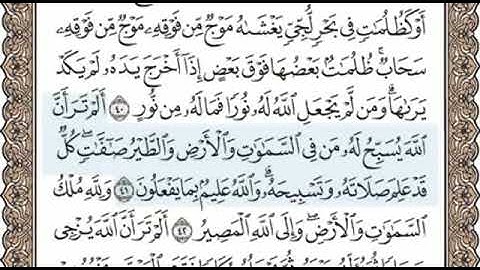 أَوْ كَظُلُمَٰتٍ فِى بَحْرٍ لُّجِّىٍّ يَغْشَىٰهُ مَوْجٌ مِّن فَوْقِهِۦ مَوْجٌ مِّن فَوْقِهِۦ
سَحَابٌ ۚ ظُلُمَٰتٌۢ بَعْضُهَا فَوْقَ بَعْضٍ إِذَآ أَخْرَجَ يَدَهُۥ لَمْ يَكَدْ
يَرَىٰهَا ۗ وَمَن لَّمْ يَجْعَلِ ٱللَّهُ لَهُۥ نُورًا فَمَا لَهُۥ مِن نُّورٍ ٤٠ أَلَمْ تَرَ أَنَّ
ٱللَّهَ يُسَبِّحُ لَهُۥ مَن فِى ٱلسَّمَٰوَٰتِ وَٱلْأَرْضِ وَٱلطَّيْرُ صَٰٓفَّٰتٍ ۖ كُلٌّ
قَدْ عَلِمَ صَلَاتَهُۥ وَتَسْبِيحَهُۥ ۗ وَٱللَّهُ عَلِيمٌۢ بِمَا يَفْعَلُونَ ٤١ وَلِلَّهِ مُلْكُ
ٱلسَّمَٰوَٰتِ وَٱلْأَرْضِ ۖ وَإِلَى ٱللَّهِ ٱلْمَصِيرُ ٤٢ أَلَمْ تَرَ أَنَّ ٱللَّهَ يُزْجِى